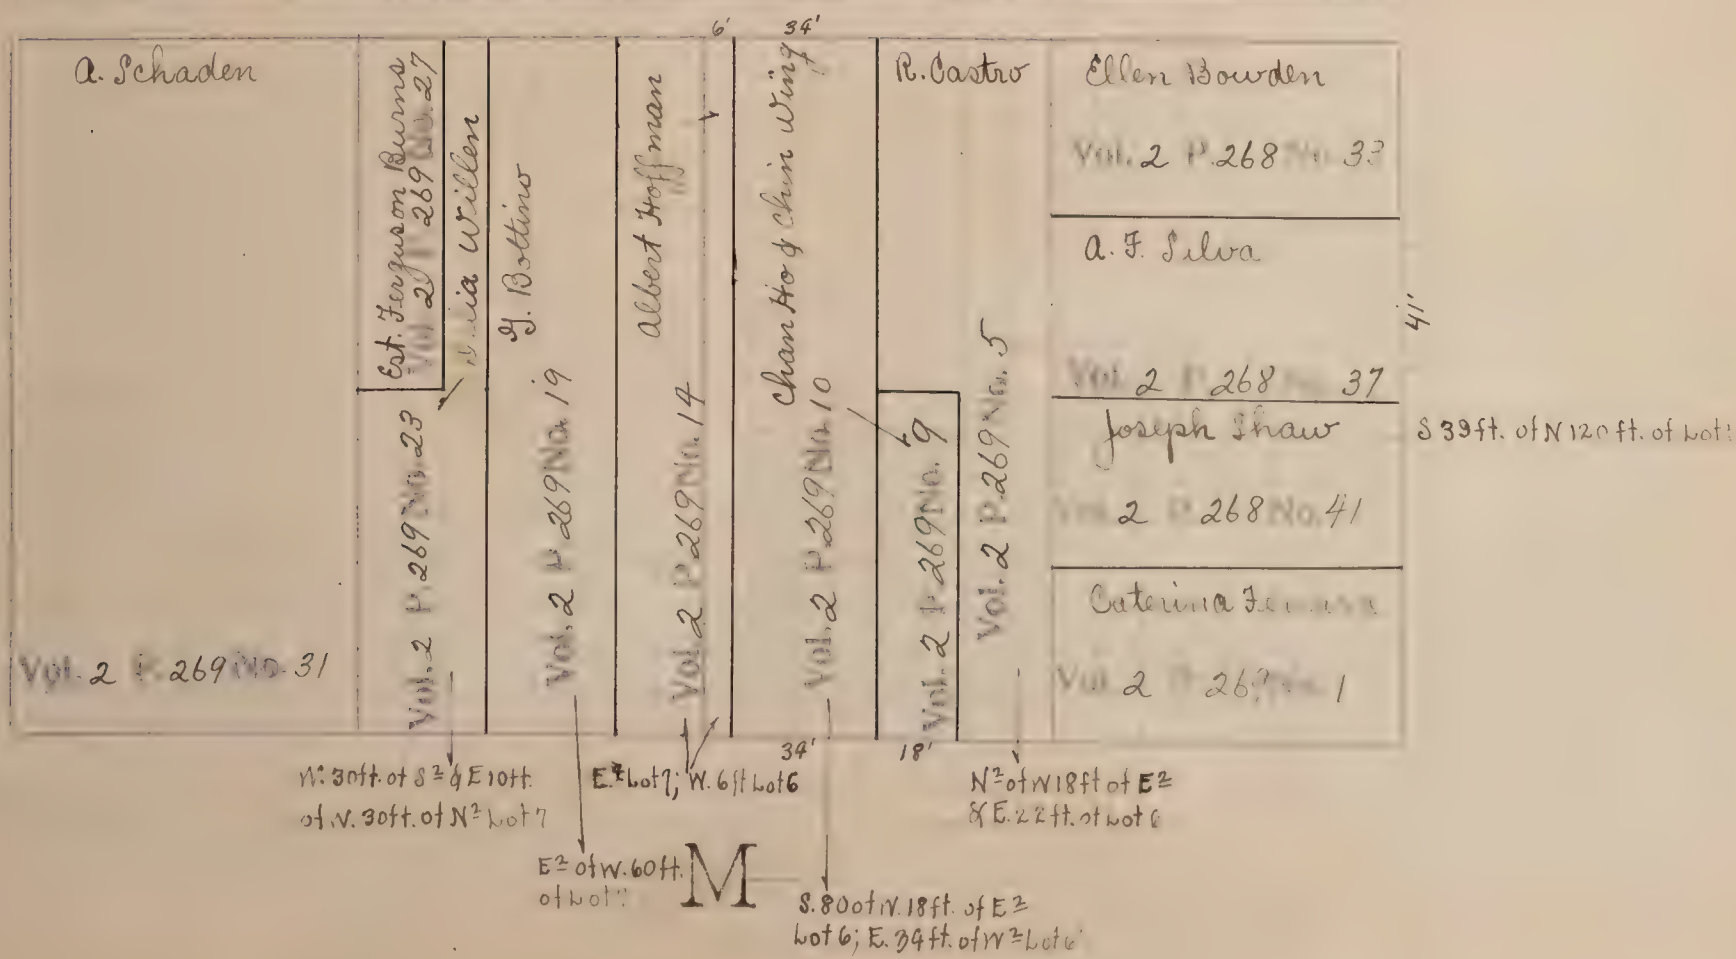 6' 34'
A. Schaden
Vol. 2 P. 269 No. 31
Est. Ferguson Burns
Vol. 2 P. 269 No. 27
Willen
Vol. 2 P. 269 No. 23
G. Bottino
Vol. 2 P. 269 No. 19
Albert Hoffman
Vol. 2 P. 269 No. 14
Chan Ho & Chin Wing
Vol. 2 P. 269 No. 10
Vol. 2 P. 269 No. 9
R. Castro
Vol. 2 P. 269 No. 5
Ellen Bowden
Vol. 2 P. 268 No. 33
A. F. Silva
41'
Vol. 2 P. 268 No. 37
Joseph Shaw
S 39 ft. of N 120 ft. of Lot
Vol. 2 P. 268 No. 41
Caterina
Vol. 2 P. No. 1
34' 18'
W. 30 ft. of S² & E 10 ft.
of W. 30 ft. of N² Lot 7
E.² Lot 7; W. 6 ft Lot 6
N² of W 18 ft of E²
& E. 22 ft. of Lot 6
E² of W. 60 ft.
of Lot
M
S. 80 of W. 18 ft. of E²
Lot 6; E. 34 ft. of W² Lot 6